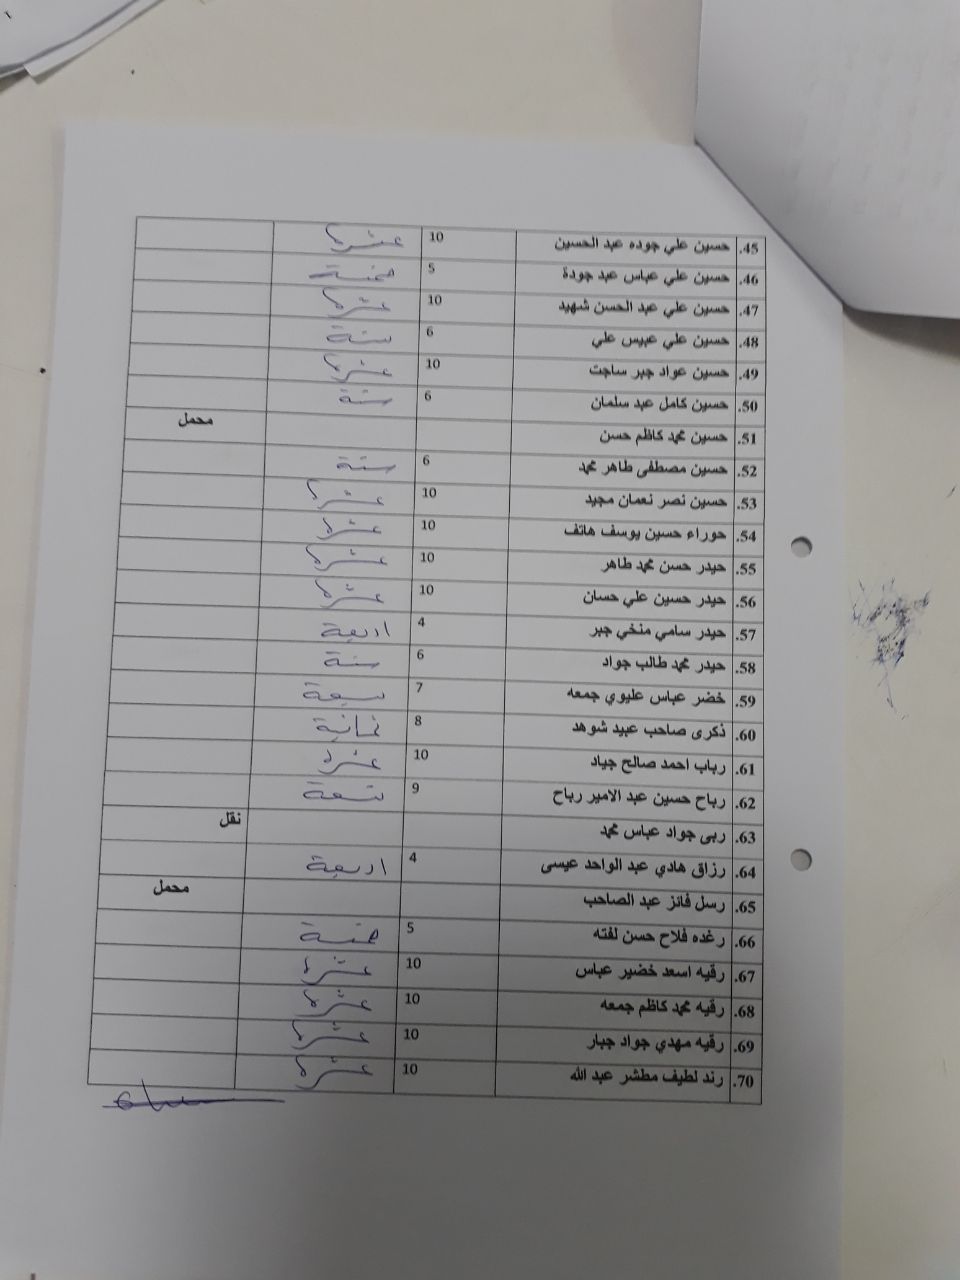 45. حسين علي جوده عبد الحسين 10 عشرة
46. حسين علي عباس عبد جودة 5 خمسة
47. حسين علي عبد الحسن شهيد 10 عشرة
48. حسين علي عبيس علي 6 ستة
49. حسين عواد جبر ساجت 10 عشرة
50. حسين كامل عبد سلمان 6 ستة
51. حسين محمد كاظم حسن محمل
52. حسين مصطفى طاهر محمد 6 ستة
53. حسين نصر نعمان مجيد 10 عشرة
54. حوراء حسين يوسف هاتف 10 عشرة
55. حيدر حسن محمد طاهر 10 عشرة
56. حيدر حسين علي حسان 10 عشرة
57. حيدر سامي منخي جبر 4 اربعة
58. حيدر محمد طالب جواد 6 ستة
59. خضر عباس عليوي جمعه 7 سبعة
60. ذكرى صاحب عبيد شوهد 8 ثمانية
61. رباب احمد صالح جياد 10 عشرة
62. رباح حسين عبد الامير رباح 9 تسعة
63. ربى جواد عباس محمد نقل
64. رزاق هادي عبد الواحد عيسى 4 اربعة
65. رسل فائز عبد الصاحب محمل
66. رغده فلاح حسن لفته 5 خمسة
67. رقيه اسعد خضير عباس 10 عشرة
68. رقيه محمد كاظم جمعه 10 عشرة
69. رقيه مهدي جواد جبار 10 عشرة
70. رند لطيف مطشر عبد الله 10 عشرة